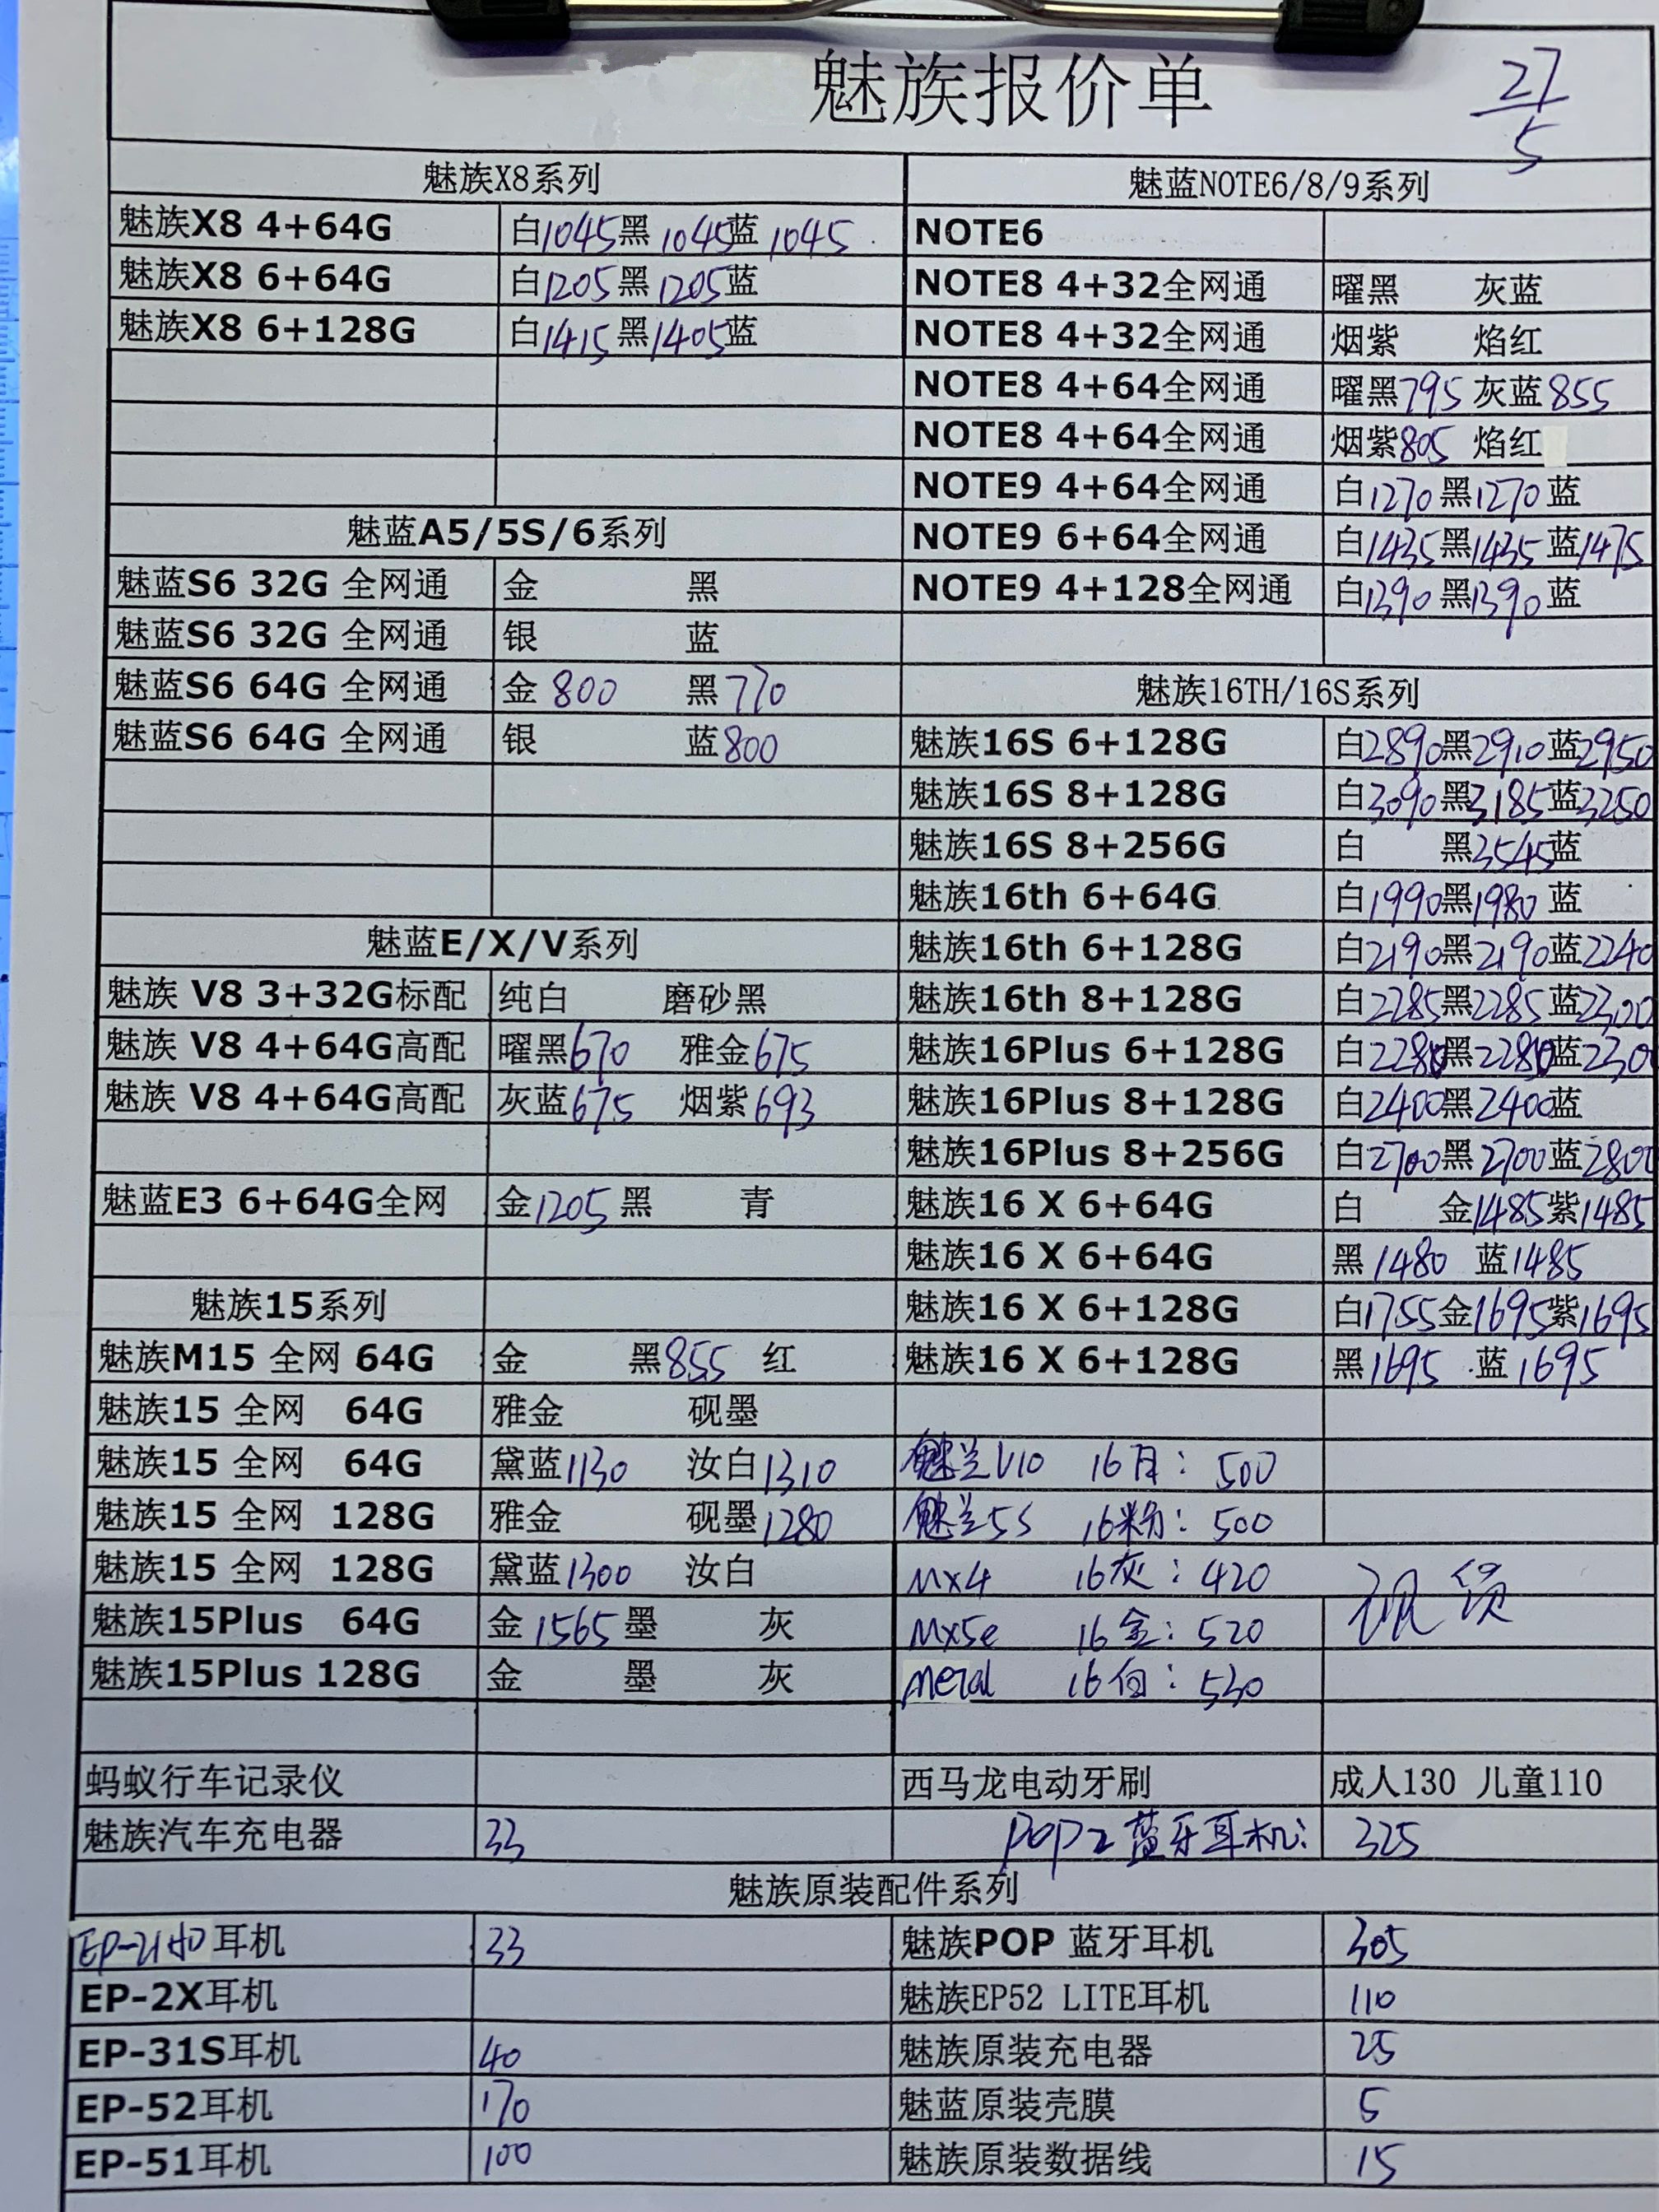 魅族报价单
27/5
魅族X8系列
魅族X8 4+64G 白1045黑1045蓝1045
魅族X8 6+64G 白1205黑1205蓝
魅族X8 6+128G 白1415黑1405蓝
魅蓝A5/5S/6系列
魅蓝S6 32G 全网通 金 黑
魅蓝S6 32G 全网通 银 蓝
魅蓝S6 64G 全网通 金800 黑770
魅蓝S6 64G 全网通 银 蓝800
魅蓝E/X/V系列
魅族 V8 3+32G标配 纯白 磨砂黑
魅族 V8 4+64G高配 曜黑670 雅金675
魅族 V8 4+64G高配 灰蓝675 烟紫693
魅蓝E3 6+64G全网 金1205黑 青
魅族15系列
魅族M15 全网 64G 金 黑855 红
魅族15 全网 64G 雅金 砚墨
魅族15 全网 64G 黛蓝1130 汝白1310
魅族15 全网 128G 雅金 砚墨1280
魅族15 全网 128G 黛蓝1300 汝白
魅族15Plus 64G 金1565墨 灰
魅族15Plus 128G 金 墨 灰
魅蓝NOTE6/8/9系列
NOTE6
NOTE8 4+32全网通 曜黑 灰蓝
NOTE8 4+32全网通 烟紫 焰红
NOTE8 4+64全网通 曜黑795 灰蓝855
NOTE8 4+64全网通 烟紫805 焰红
NOTE9 4+64全网通 白1270黑1270蓝
NOTE9 6+64全网通 白1435黑1435蓝1475
NOTE9 4+128全网通 白1390黑1390蓝
魅族16TH/16S系列
魅族16S 6+128G 白2890黑2910蓝2950
魅族16S 8+128G 白3090黑3185蓝3250
魅族16S 8+256G 白 黑3545蓝
魅族16th 6+64G 白1990黑1980蓝
魅族16th 6+128G 白2190黑2190蓝2240
魅族16th 8+128G 白2285黑2285蓝2300
魅族16Plus 6+128G 白2280黑2280蓝2300
魅族16Plus 8+128G 白2400黑2400蓝
魅族16Plus 8+256G 白2700黑2700蓝2800
魅族16 X 6+64G 白 金1485紫1485
魅族16 X 6+64G 黑1480 蓝1485
魅族16 X 6+128G 白1755金1695紫1695
魅族16 X 6+128G 黑1695 蓝1695
魅兰V10 16月:500
魅兰5S 16粉:500
MX4 16灰:420
MX5e 16金:520
现货
metal 16白:530
蚂蚁行车记录仪
西马龙电动牙刷 成人130 儿童110
魅族汽车充电器 33
POP2蓝牙耳机: 325
魅族原装配件系列
EP-2140耳机 33
魅族POP 蓝牙耳机 305
EP-2X耳机
魅族EP52 LITE耳机 110
EP-31S耳机 40
魅族原装充电器 25
EP-52耳机 170
魅蓝原装壳膜 5
EP-51耳机 100
魅族原装数据线 15